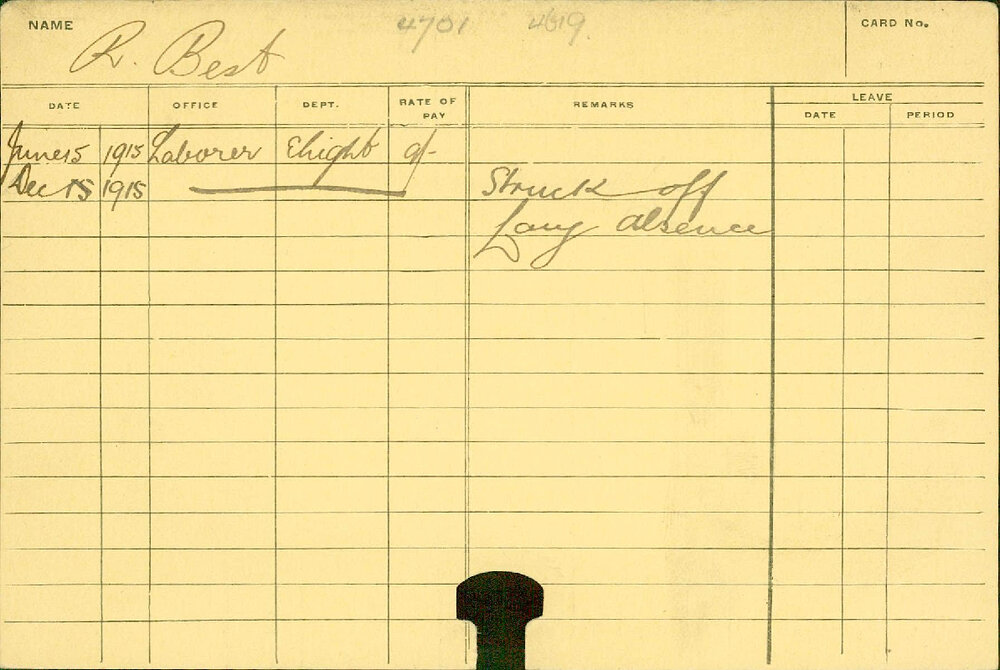 NAME R. Best 4701 4619. CARD No.
DATE OFFICE DEPT. RATE OF PAY REMARKS LEAVE
DATE PERIOD
June 15 1915 Laborer Elright 9/-
Dec 15 1915 Struck off
Long absence